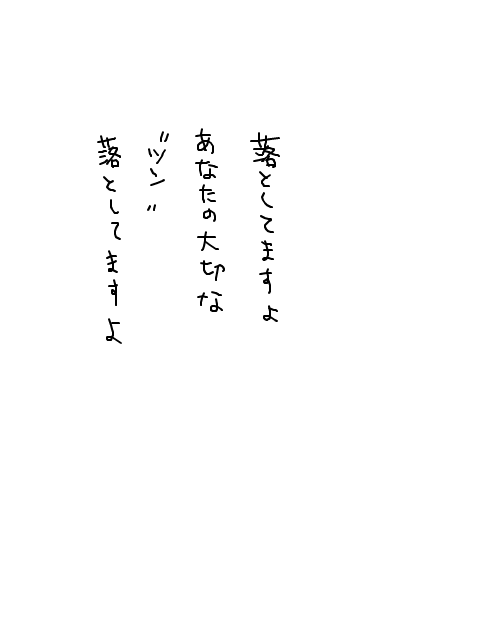 落としてますよ
あなたの大切な
"ツン"
落としてますよ